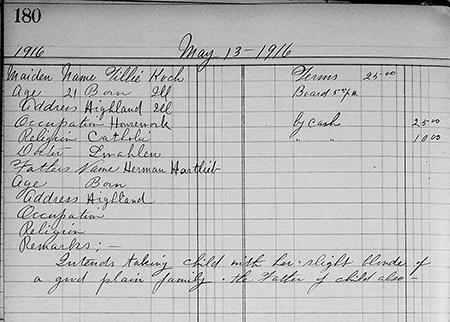 180
1916 May 13-1916
Maiden Name Tillie Koch Terms 25.00
Age 21 Born Ill Board 5
Address Highland Ill
Occupation Housework By Cash 25.00
Religion Catholic " " 10.00
Doctor
Fathers Name Herman Hartlieb
Age Born
Address Highland
Occupation
Religion
Remarks:-
Intends taking child with her. slight blonde of
a good plain family. the Father of child also-